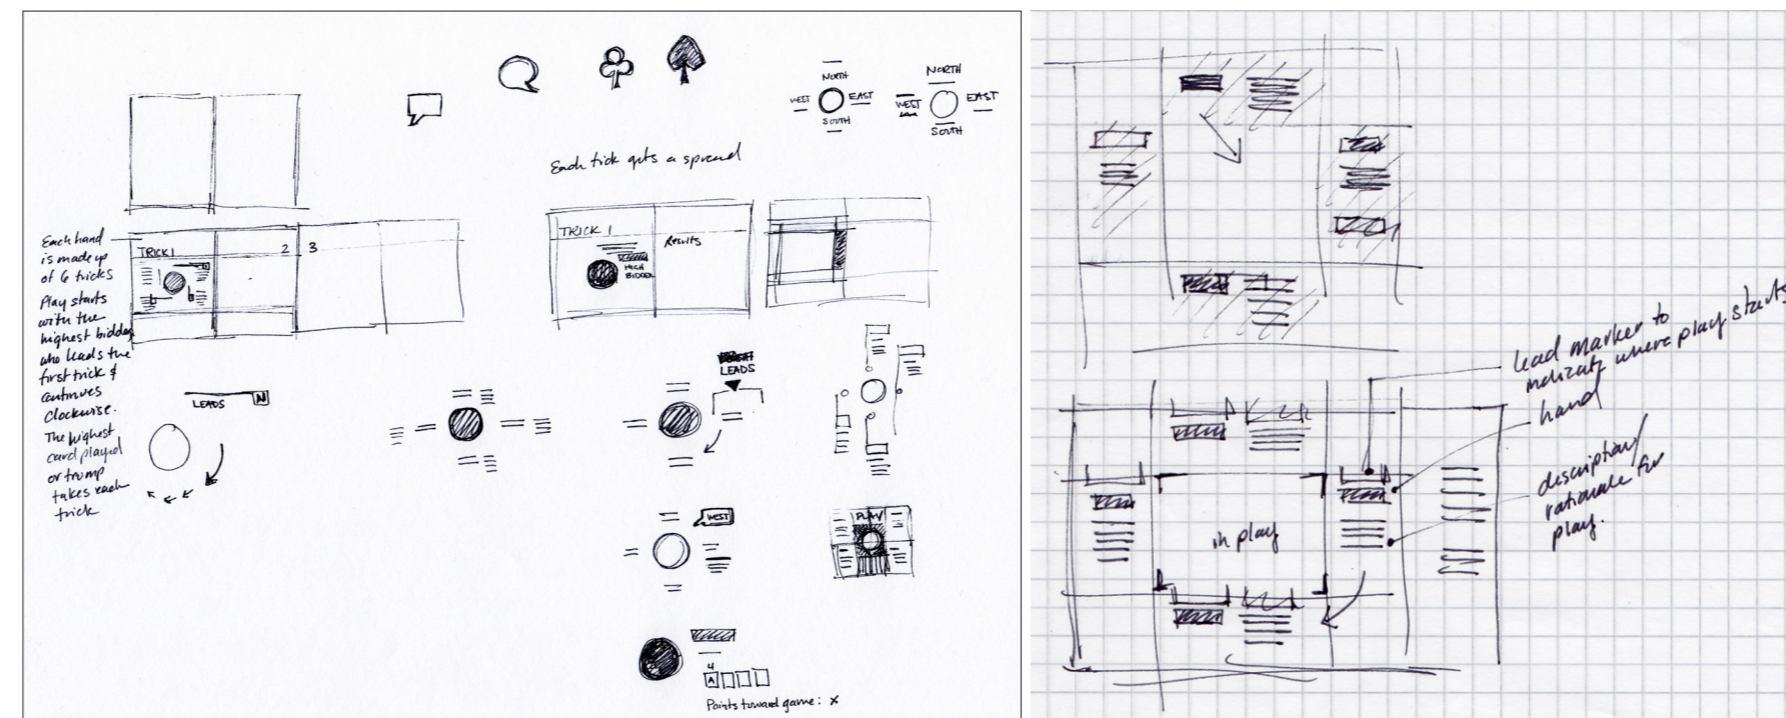 NORTH
WEST
EAST
SOUTH
NORTH
WEST
EAST
SOUTH
Each tick gets a spread
Each hand
is made up
of 6 tricks
Play starts
with the
highest bidder
who leads the
first trick &
continues
clockwise.
The highest
card played
or trump
takes each
trick
TRICK 1
2
3
TRICK 1
Results
HIGH
BIDDER
LEADS
N
LEADS
WEST
PLAY
4
A
Points toward game: x
lead marker to
indicate where play starts
hand
description/
rationale for
play.
in play